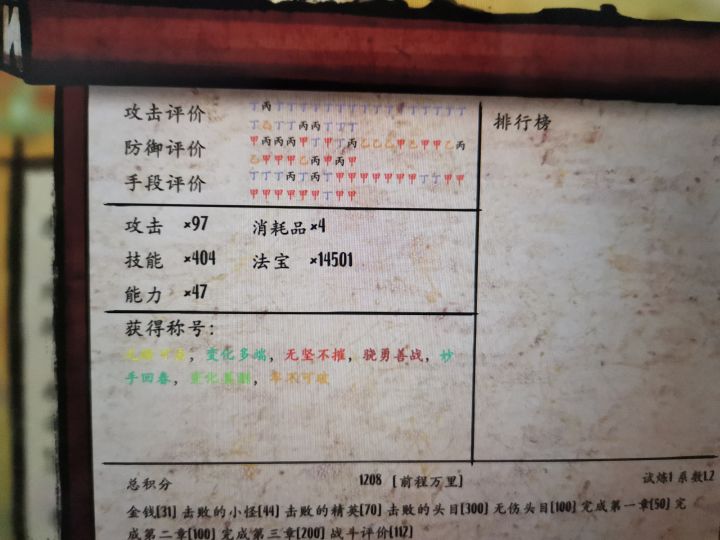 攻击评价
丁丙丁丁丁丁丁丁丁丁丁丁丁丁丁丁丁丁
丁乙丁丁丙丙丁丁丁
防御评价
甲丙丙丙甲丁甲丁丙乙乙乙甲乙甲甲乙丙
乙甲甲甲乙丙甲丙甲
手段评价
丁丁丁丙丁丙丁甲甲甲甲甲甲甲丁丁甲甲
甲甲甲甲甲甲丁甲甲
攻击 ×97 消耗品×4
技能 ×404 法宝 ×14501
能力 ×47
获得称号：
变化多端，无坚不摧，骁勇善战，妙
手回春，变化莫测，牢不可破
排行榜
总积分 1208 [前程万里] 试炼1 系数1.2
金钱[31] 击败的小怪[44] 击败的精英[70] 击败的头目[300] 无伤头目[100] 完成第一章[50] 完
成第二章[100] 完成第三章[200] 战斗评价[112]